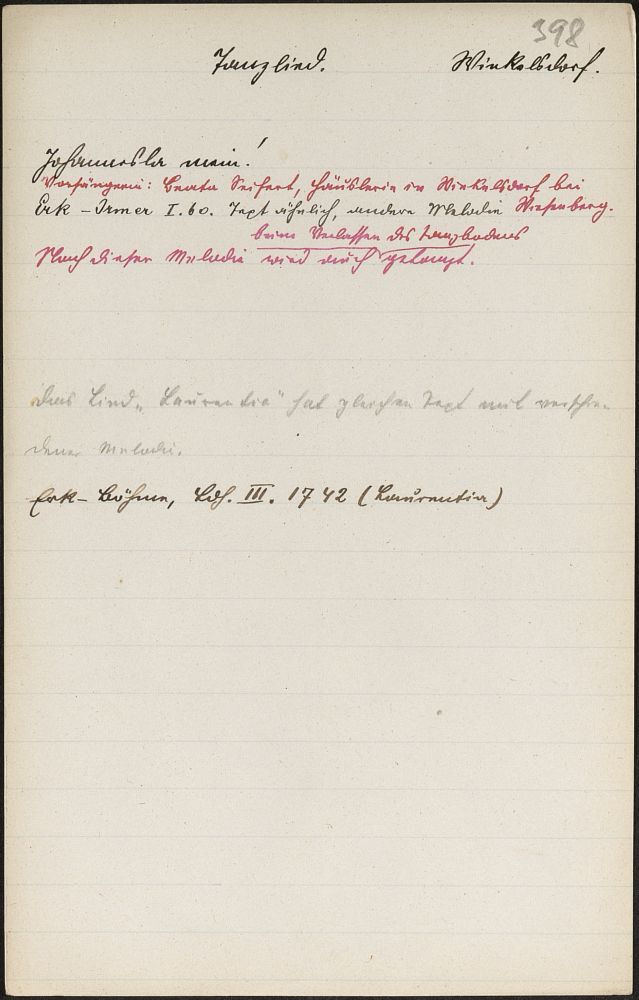 398
Tanzlied. Winkelsdorf.
Johannesla mein!
Vorsängerin: Beata Seifert, Häuslerin in Winkelsdorf bei
Erk – Irmer I. 60. Text ähnlich, andere Melodie Wiesenberg.
beim Verlassen des Tanzbodens
Nach dieser Melodie wird auch getanzt.
Das Lied „Laurentia" hat gleichen Text mit verschie-
dener Melodie.
Erk – Böhme, Ldh. III. 1742 (Laurentia)